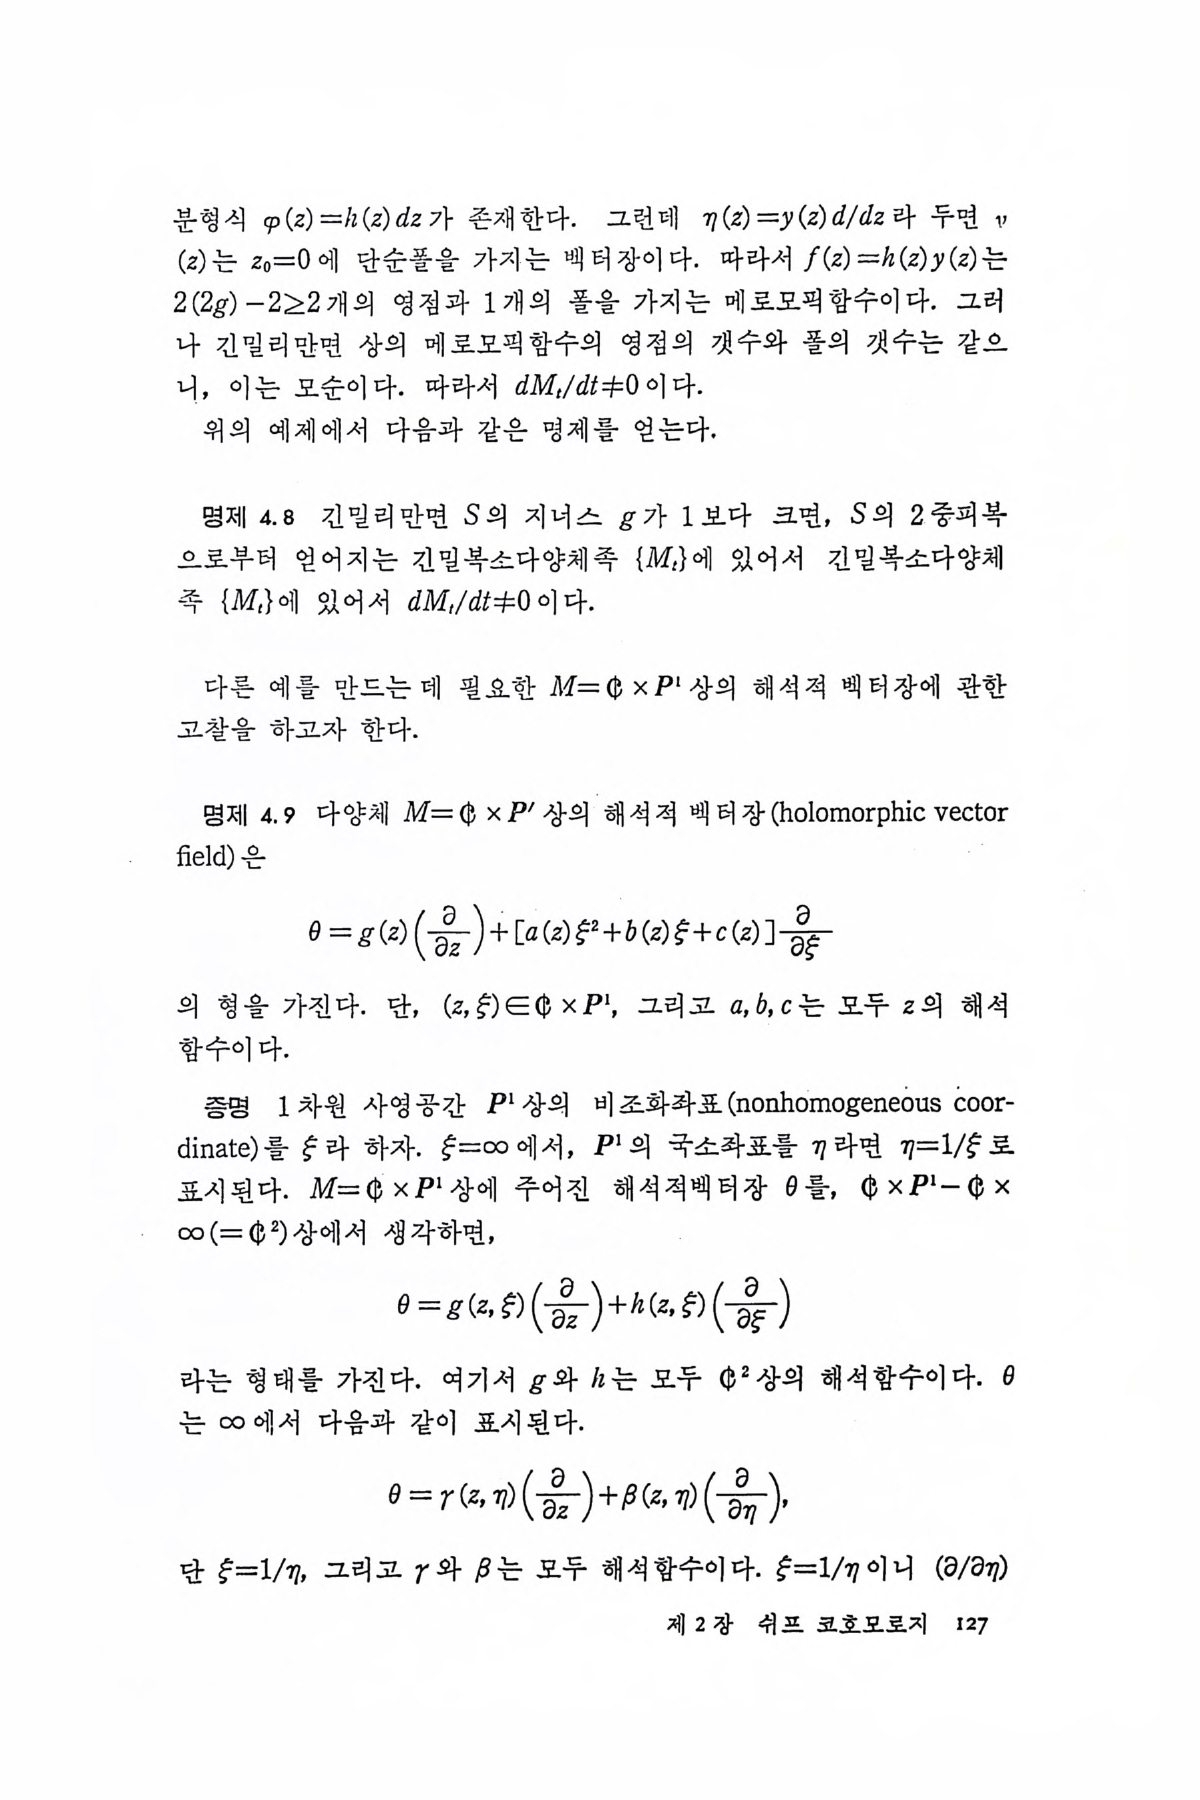 분형식 φ(z)=h(z)dz가 존재한다. 그런데 η(z)=y(z)d/dz라 두면 v
(z)는 z₀=0에 단순폴을 가지는 벡터장이다. 따라서 f(z)=h(z)y(z)는
2(2g)−2≥2개의 영점과 1개의 폴을 가지는 메로모픽함수이다. 그러
나 긴밀리만면 상의 메로모픽함수의 영점의 갯수와 폴의 갯수는 같으
니, 이는 모순이다. 따라서 dMₜ/dt≠0이다.
위의 예제에서 다음과 같은 명제를 얻는다.
명제 4.8 긴밀리만면 S의 지너스 g가 1보다 크면, S의 2중피복
으로부터 얻어지는 긴밀복소다양체족 {Mₜ}에 있어서 긴밀복소다양체
족 {Mₜ}에 있어서 dMₜ/dt≠0이다.
다른 예를 만드는 데 필요한 M=ℂ×P¹ 상의 해석적 벡터장에 관한
고찰을 하고자 한다.
명제 4.9 다양체 M=ℂ×P′ 상의 해석적 벡터장(holomorphic vector
field)은
θ=g(z)(∂/∂z)+[a(z)ξ²+b(z)ξ+c(z)]∂/∂ξ
의 형을 가진다. 단, (z,ξ)∈ℂ×P¹, 그리고 a, b, c는 모두 z의 해석
함수이다.
증명 1차원 사영공간 P¹상의 비조화좌표(nonhomogeneous coor-
dinate)를 ξ라 하자. ξ=∞에서, P¹의 국소좌표를 η라면 η=1/ξ로
표시된다. M=ℂ×P¹상에 주어진 해석적벡터장 θ를, ℂ×P¹−ℂ×
∞(=ℂ²)상에서 생각하면,
θ=g(z,ξ)(∂/∂z)+h(z,ξ)(∂/∂ξ)
라는 형태를 가진다. 여기서 g와 h는 모두 ℂ²상의 해석함수이다. θ
는 ∞에서 다음과 같이 표시된다.
θ=γ(z,η)(∂/∂z)+β(z,η)(∂/∂η),
단 ξ=1/η, 그리고 γ와 β는 모두 해석함수이다. ξ=1/η이니 (∂/∂η)
제 2 장 쉬프 코호모로지 127